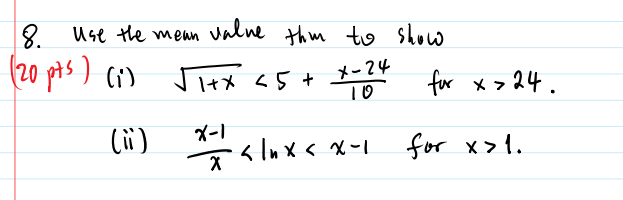 8. Use the mean value thm to show
(20 pts) (i) √1+x < 5 + x-24/10 for x > 24.
(ii) x-1/x < ln x < x-1 for x > 1.